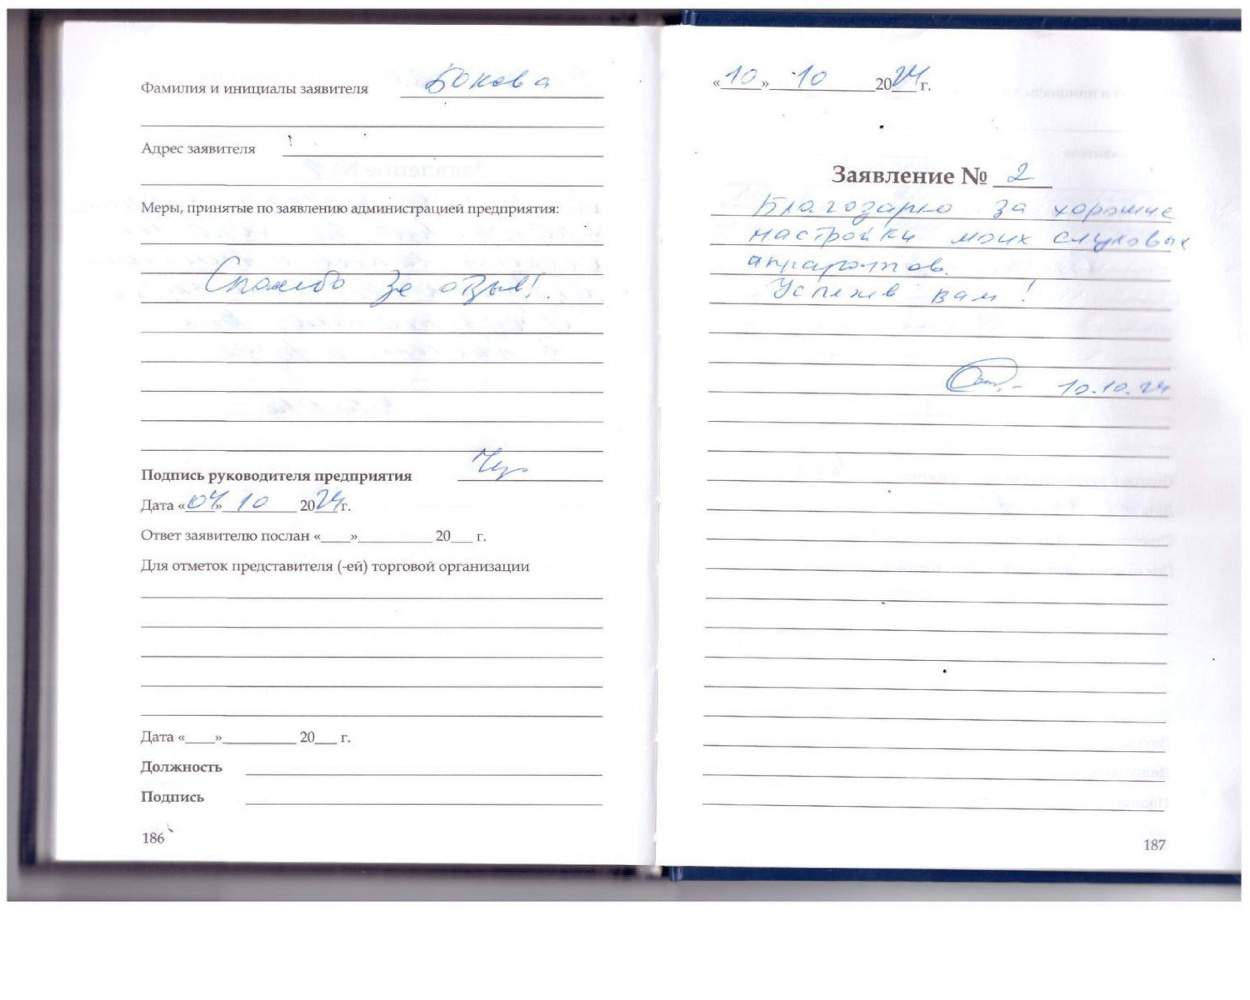 Фамилия и инициалы заявителя Бокова
Адрес заявителя
Меры, принятые по заявлению администрацией предприятия:
Спасибо за отзыв!
Подпись руководителя предприятия
Дата «04» 10 2024 г.
Ответ заявителю послан «____»__________ 20___ г.
Для отметок представителя (-ей) торговой организации
Дата «____»__________ 20___ г.
Должность
Подпись
186
«10» 10 2024 г.
Заявление № 2
Благодарю за хорошие
настройки моих слуховых
аппаратов.
Успехов вам!
10.10.24
187